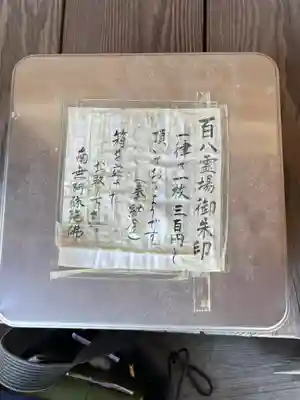 百八霊場御朱印
一律で一枚三百円を
頂いております。
（奉納は）
箱を
お取り下さい
南無阿弥陀佛